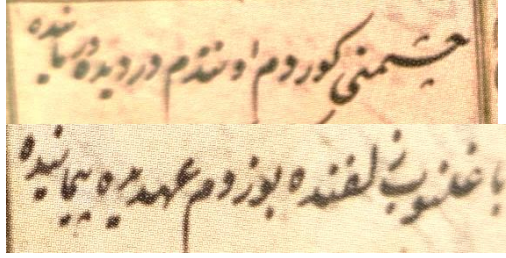 چشمنی کوردوم اونتدم دردیده درمانیده
باغلنوب زلفنده بوزدوم عهدمیده پیمانیده